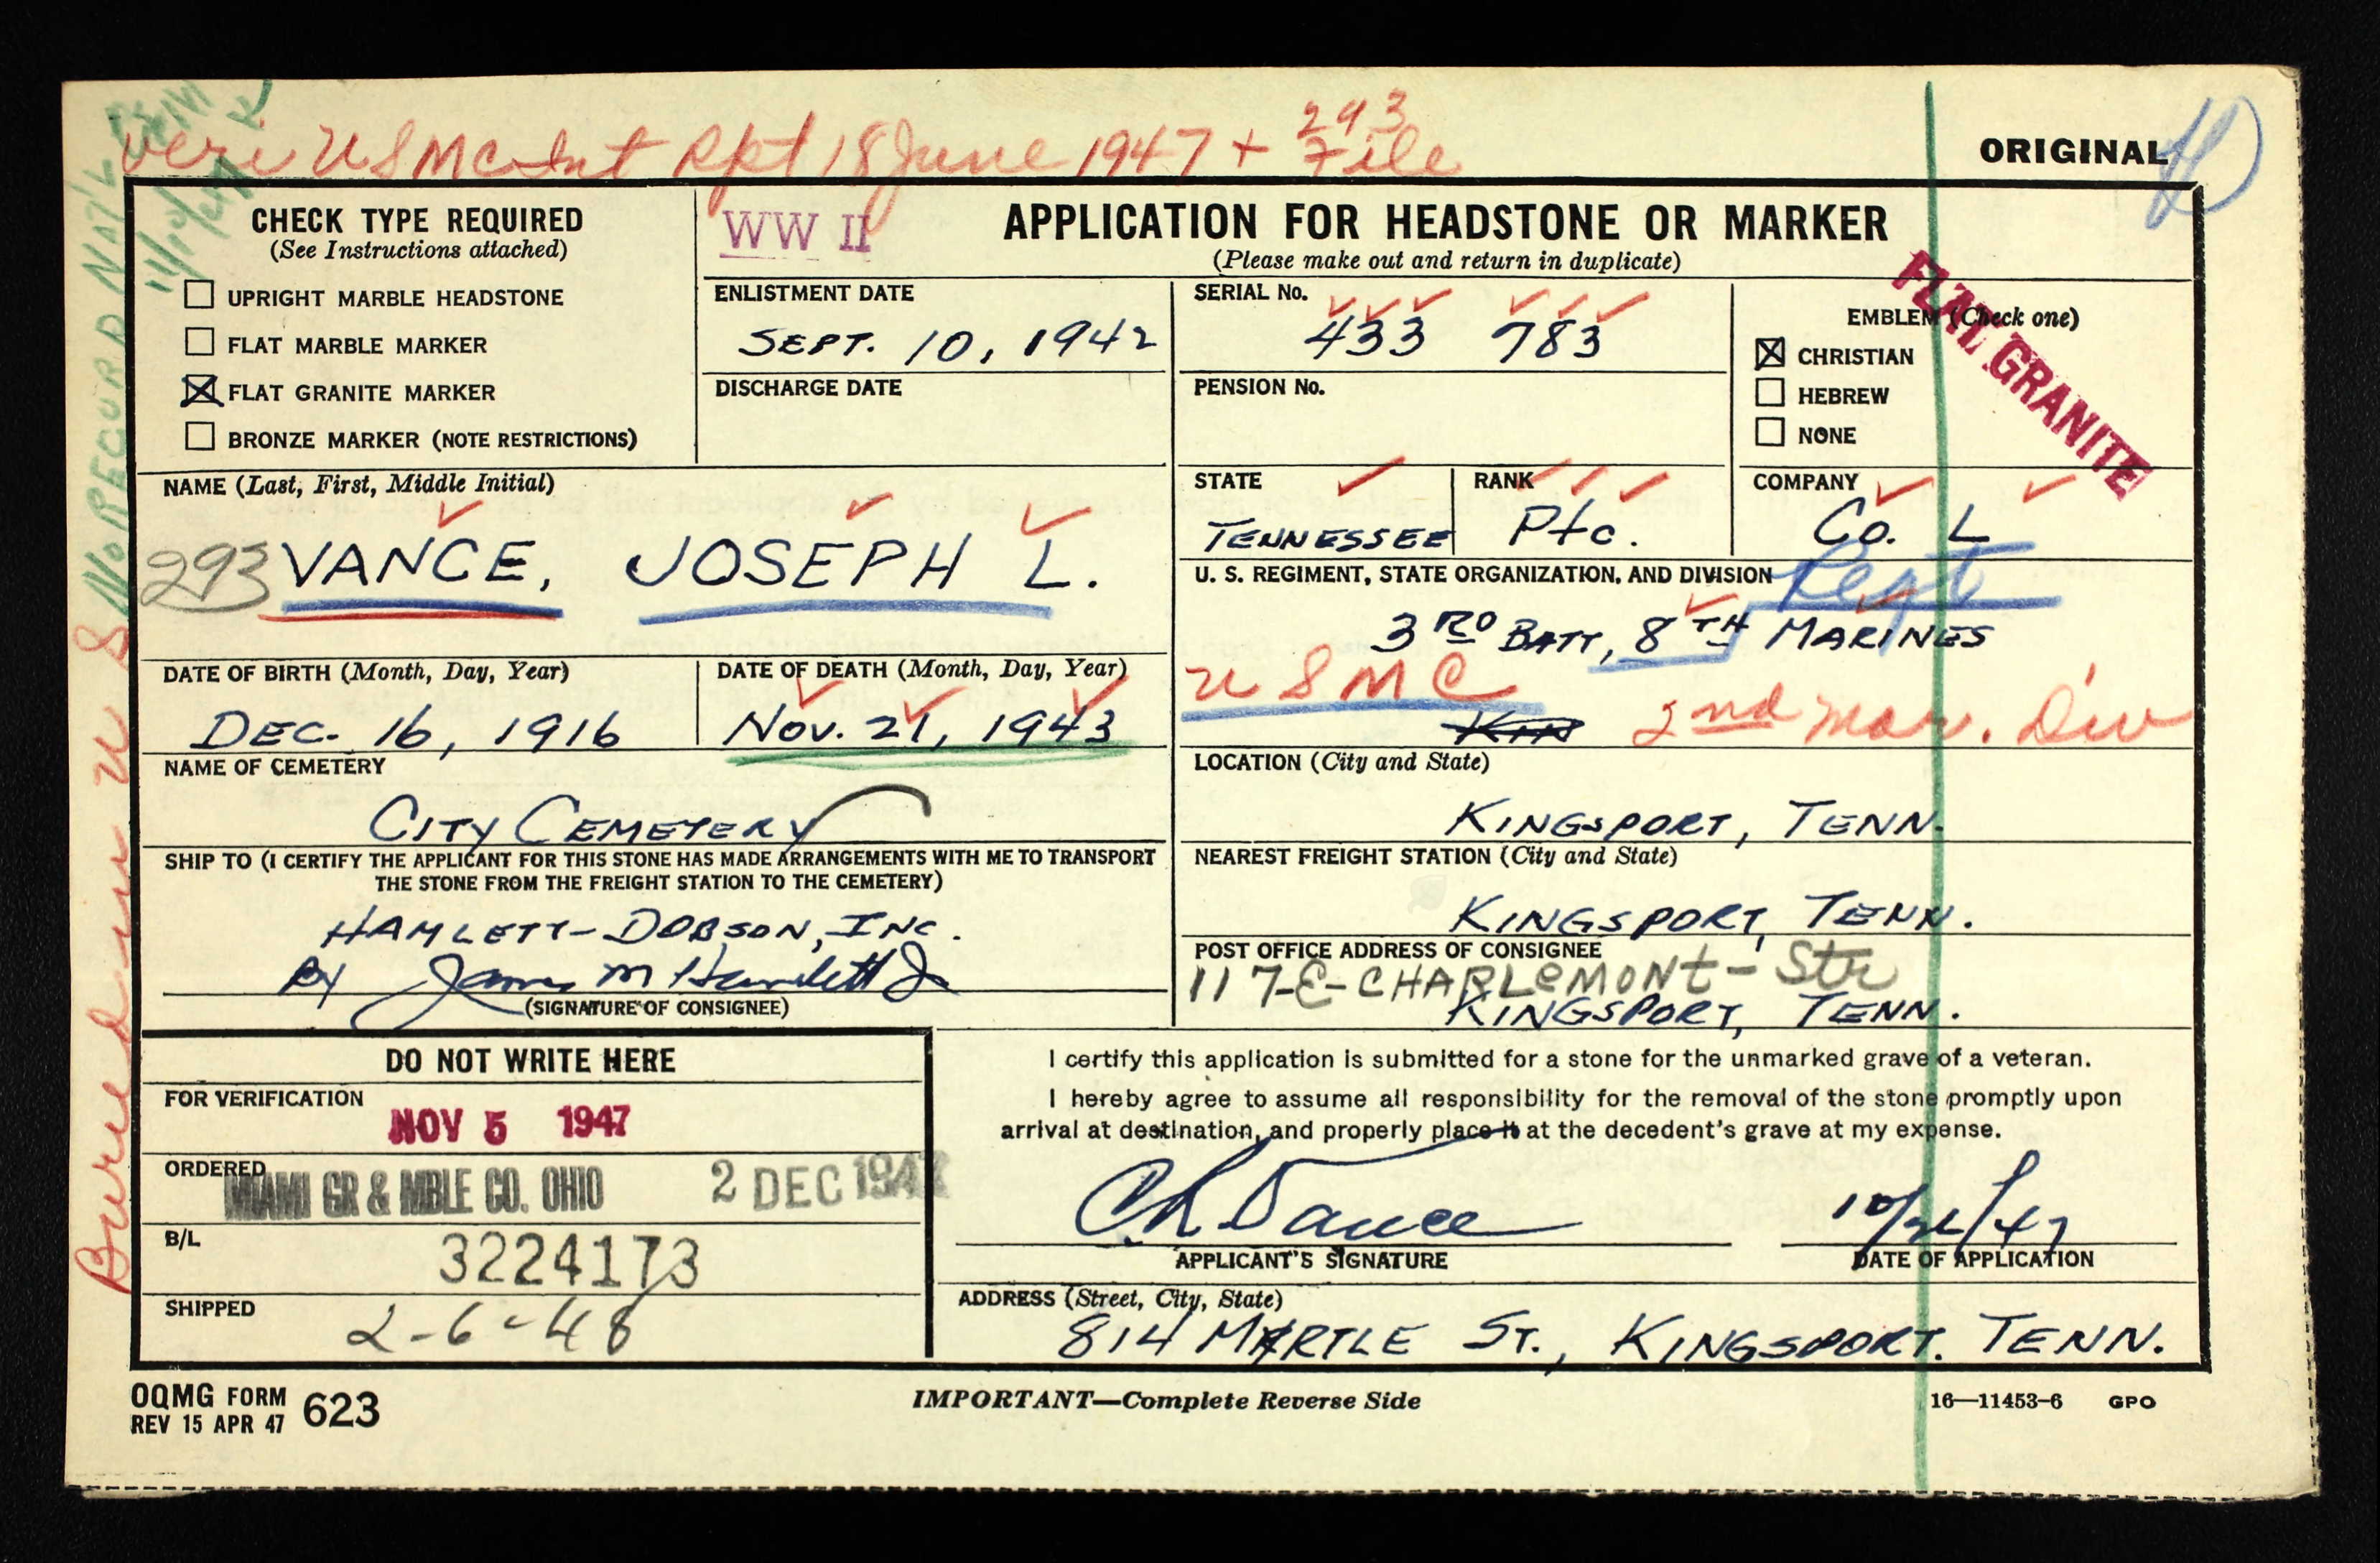 veri USMC Int Rpt 18 June 1947 + 293 File
ORIGINAL
NO RECORD NAT'L
11/10/47
Buried in U S
CHECK TYPE REQUIRED
(See Instructions attached)
UPRIGHT MARBLE HEADSTONE
FLAT MARBLE MARKER
☒ FLAT GRANITE MARKER
BRONZE MARKER (NOTE RESTRICTIONS)
WW II
APPLICATION FOR HEADSTONE OR MARKER
(Please make out and return in duplicate)
ENLISTMENT DATE
SEPT. 10, 1942
DISCHARGE DATE
SERIAL No.
433 783
PENSION No.
EMBLEM (Check one)
☒ CHRISTIAN
HEBREW
NONE
FLAT GRANITE
NAME (Last, First, Middle Initial)
293 VANCE, JOSEPH L.
STATE
TENNESSEE
RANK
Pfc.
COMPANY
Co. L
U. S. REGIMENT, STATE ORGANIZATION, AND DIVISION
Regt
3RD BATT, 8TH MARINES
USMC
2nd Mar. Div
DATE OF BIRTH (Month, Day, Year)
DEC. 16, 1916
DATE OF DEATH (Month, Day, Year)
NOV. 21, 1943
NAME OF CEMETERY
CITY CEMETERY
LOCATION (City and State)
KINGSPORT, TENN.
SHIP TO (I CERTIFY THE APPLICANT FOR THIS STONE HAS MADE ARRANGEMENTS WITH ME TO TRANSPORT
THE STONE FROM THE FREIGHT STATION TO THE CEMETERY)
HAMLETT-DOBSON, INC.
BY James M Hamlett Jr
(SIGNATURE OF CONSIGNEE)
NEAREST FREIGHT STATION (City and State)
KINGSPORT, TENN.
POST OFFICE ADDRESS OF CONSIGNEE
117-E-CHARLEMONT-Str
KINGSPORT, TENN.
DO NOT WRITE HERE
FOR VERIFICATION
NOV 5 1947
ORDERED
MIAMI GR & MBLE CO. OHIO 2 DEC 1947
B/L
3224173
SHIPPED
2-6-48
I certify this application is submitted for a stone for the unmarked grave of a veteran.
I hereby agree to assume all responsibility for the removal of the stone promptly upon
arrival at destination, and properly place it at the decedent's grave at my expense.
APPLICANT'S SIGNATURE
DATE OF APPLICATION
ADDRESS (Street, City, State)
814 MYRTLE ST., KINGSPORT. TENN.
OQMG FORM 623
REV 15 APR 47
IMPORTANT—Complete Reverse Side
16—11453-6 GPO